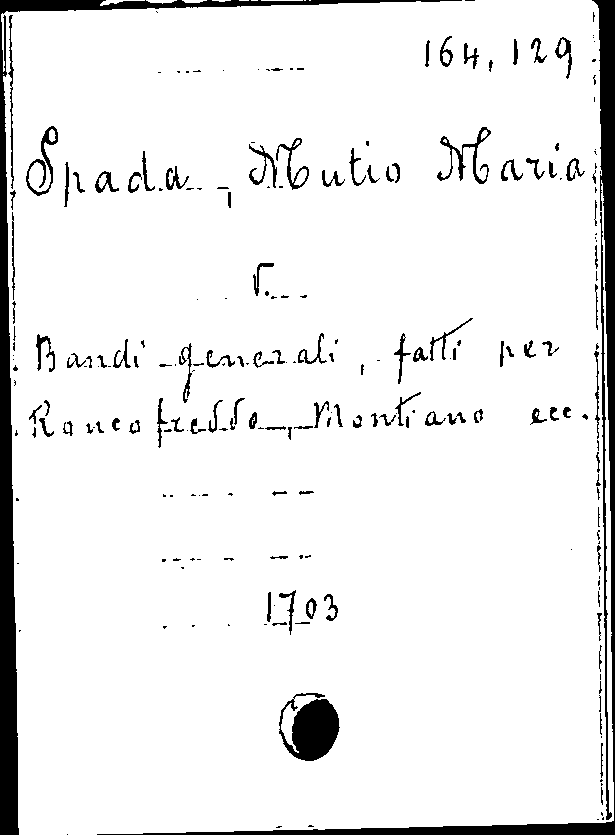 164, 129
Spada, Mutio Maria
V.
Bandi generali, fatti per
Roncofreddo, Montiano ecc.
1703